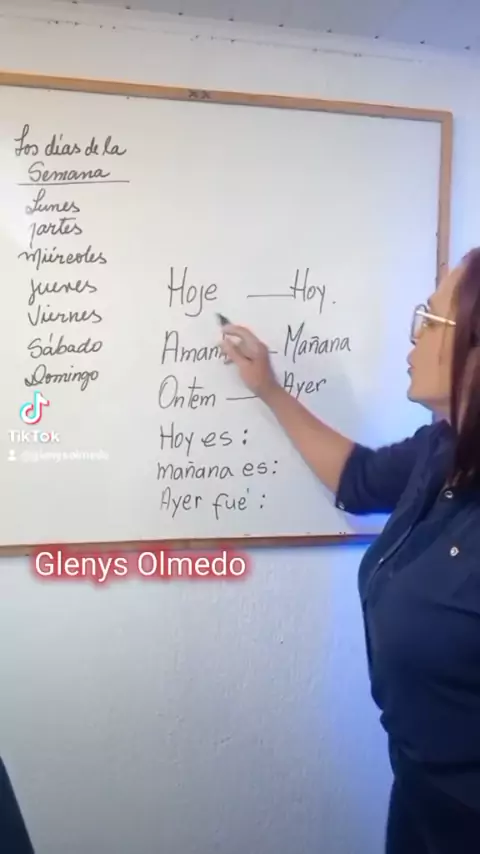 Los días de la
Semana
Lunes
Martes
Miércoles
Jueves
Viernes
Sábado
Domingo
Hoje — Hoy.
— Mañana
Ontem — Ayer
Hoy es:
mañana es:
Ayer fué:
TikTok
@glenysolmedo
Glenys Olmedo